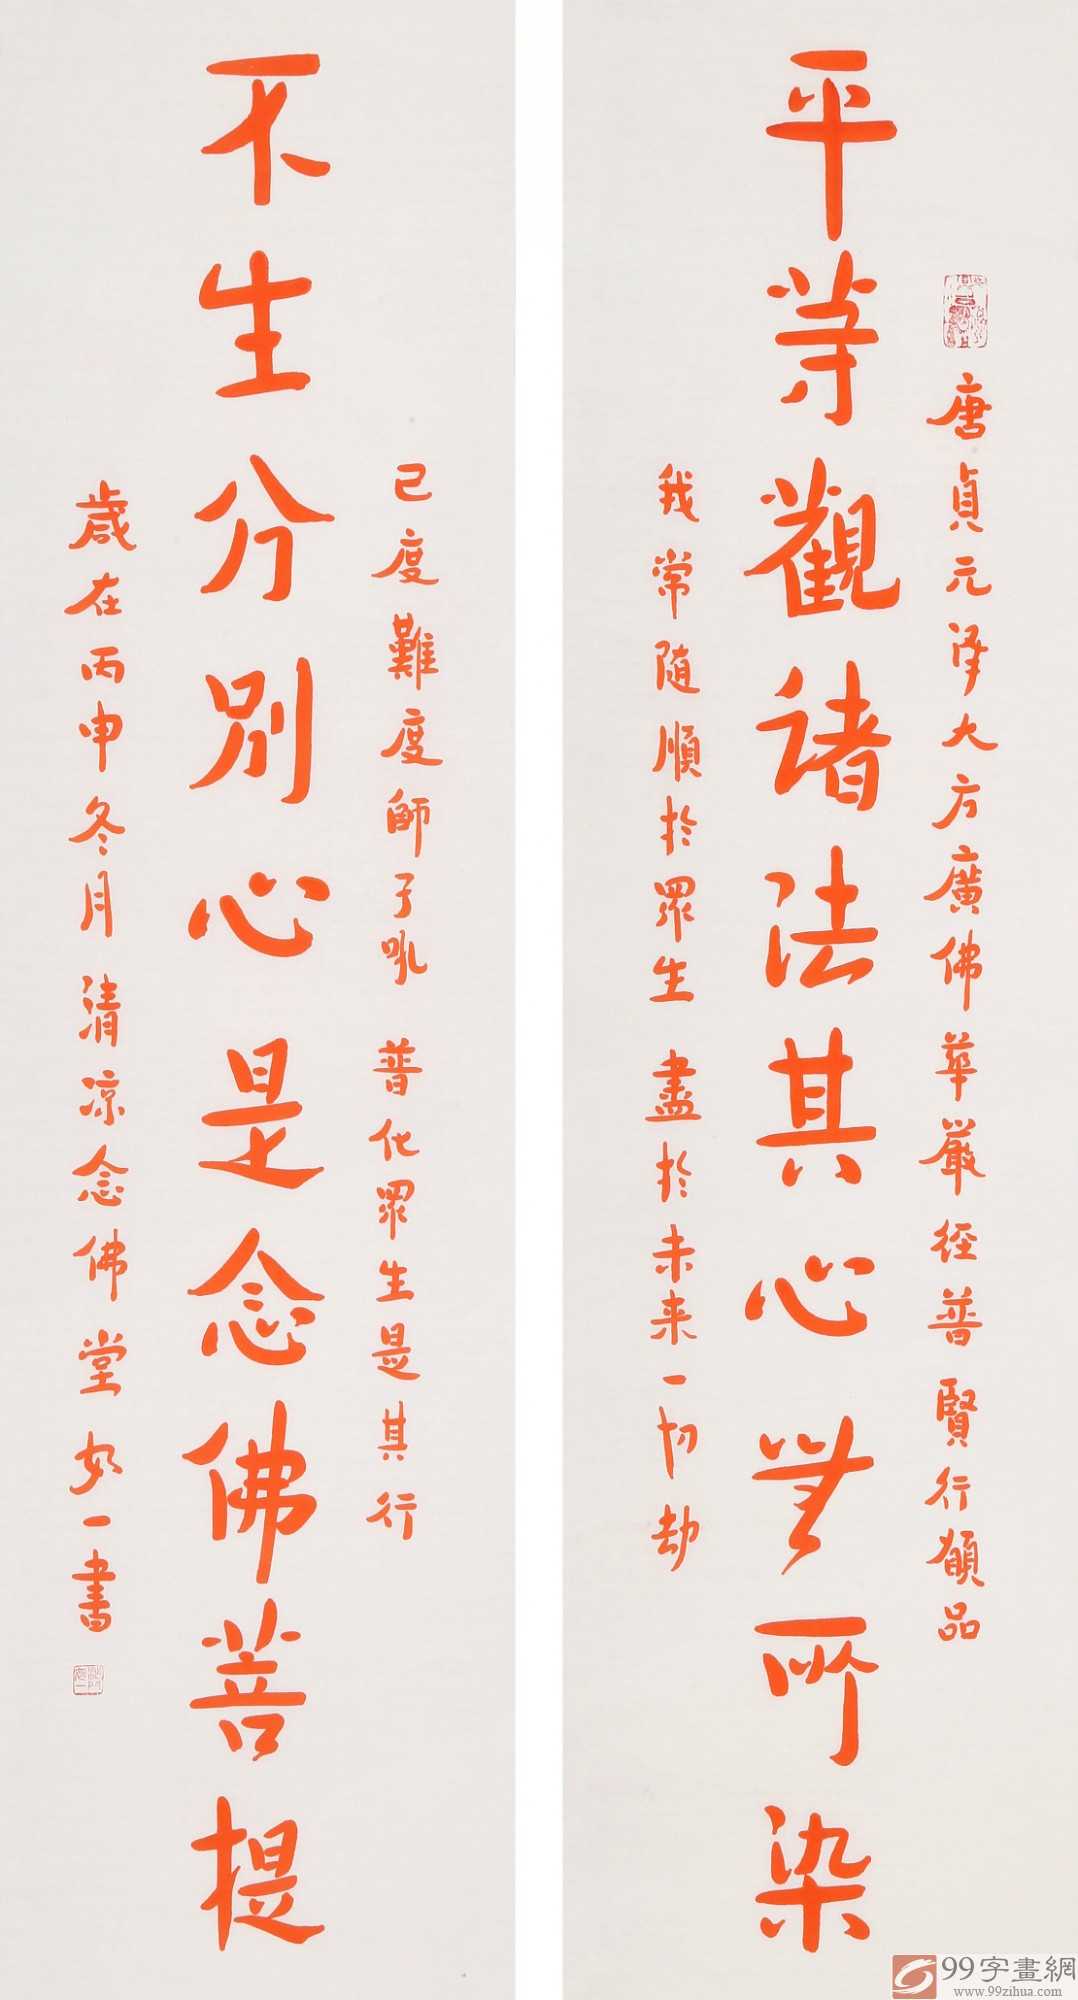 唐貞元译大方廣佛華嚴经普賢行願品
平等觀諸法其心無所染
我常随順於眾生 盡於未来一切劫
已度難度師子吼 普化眾生是其行
不生分別心是念佛菩提
歲在丙申冬月清凉念佛堂如一書
99字畫網
www.99zihua.com